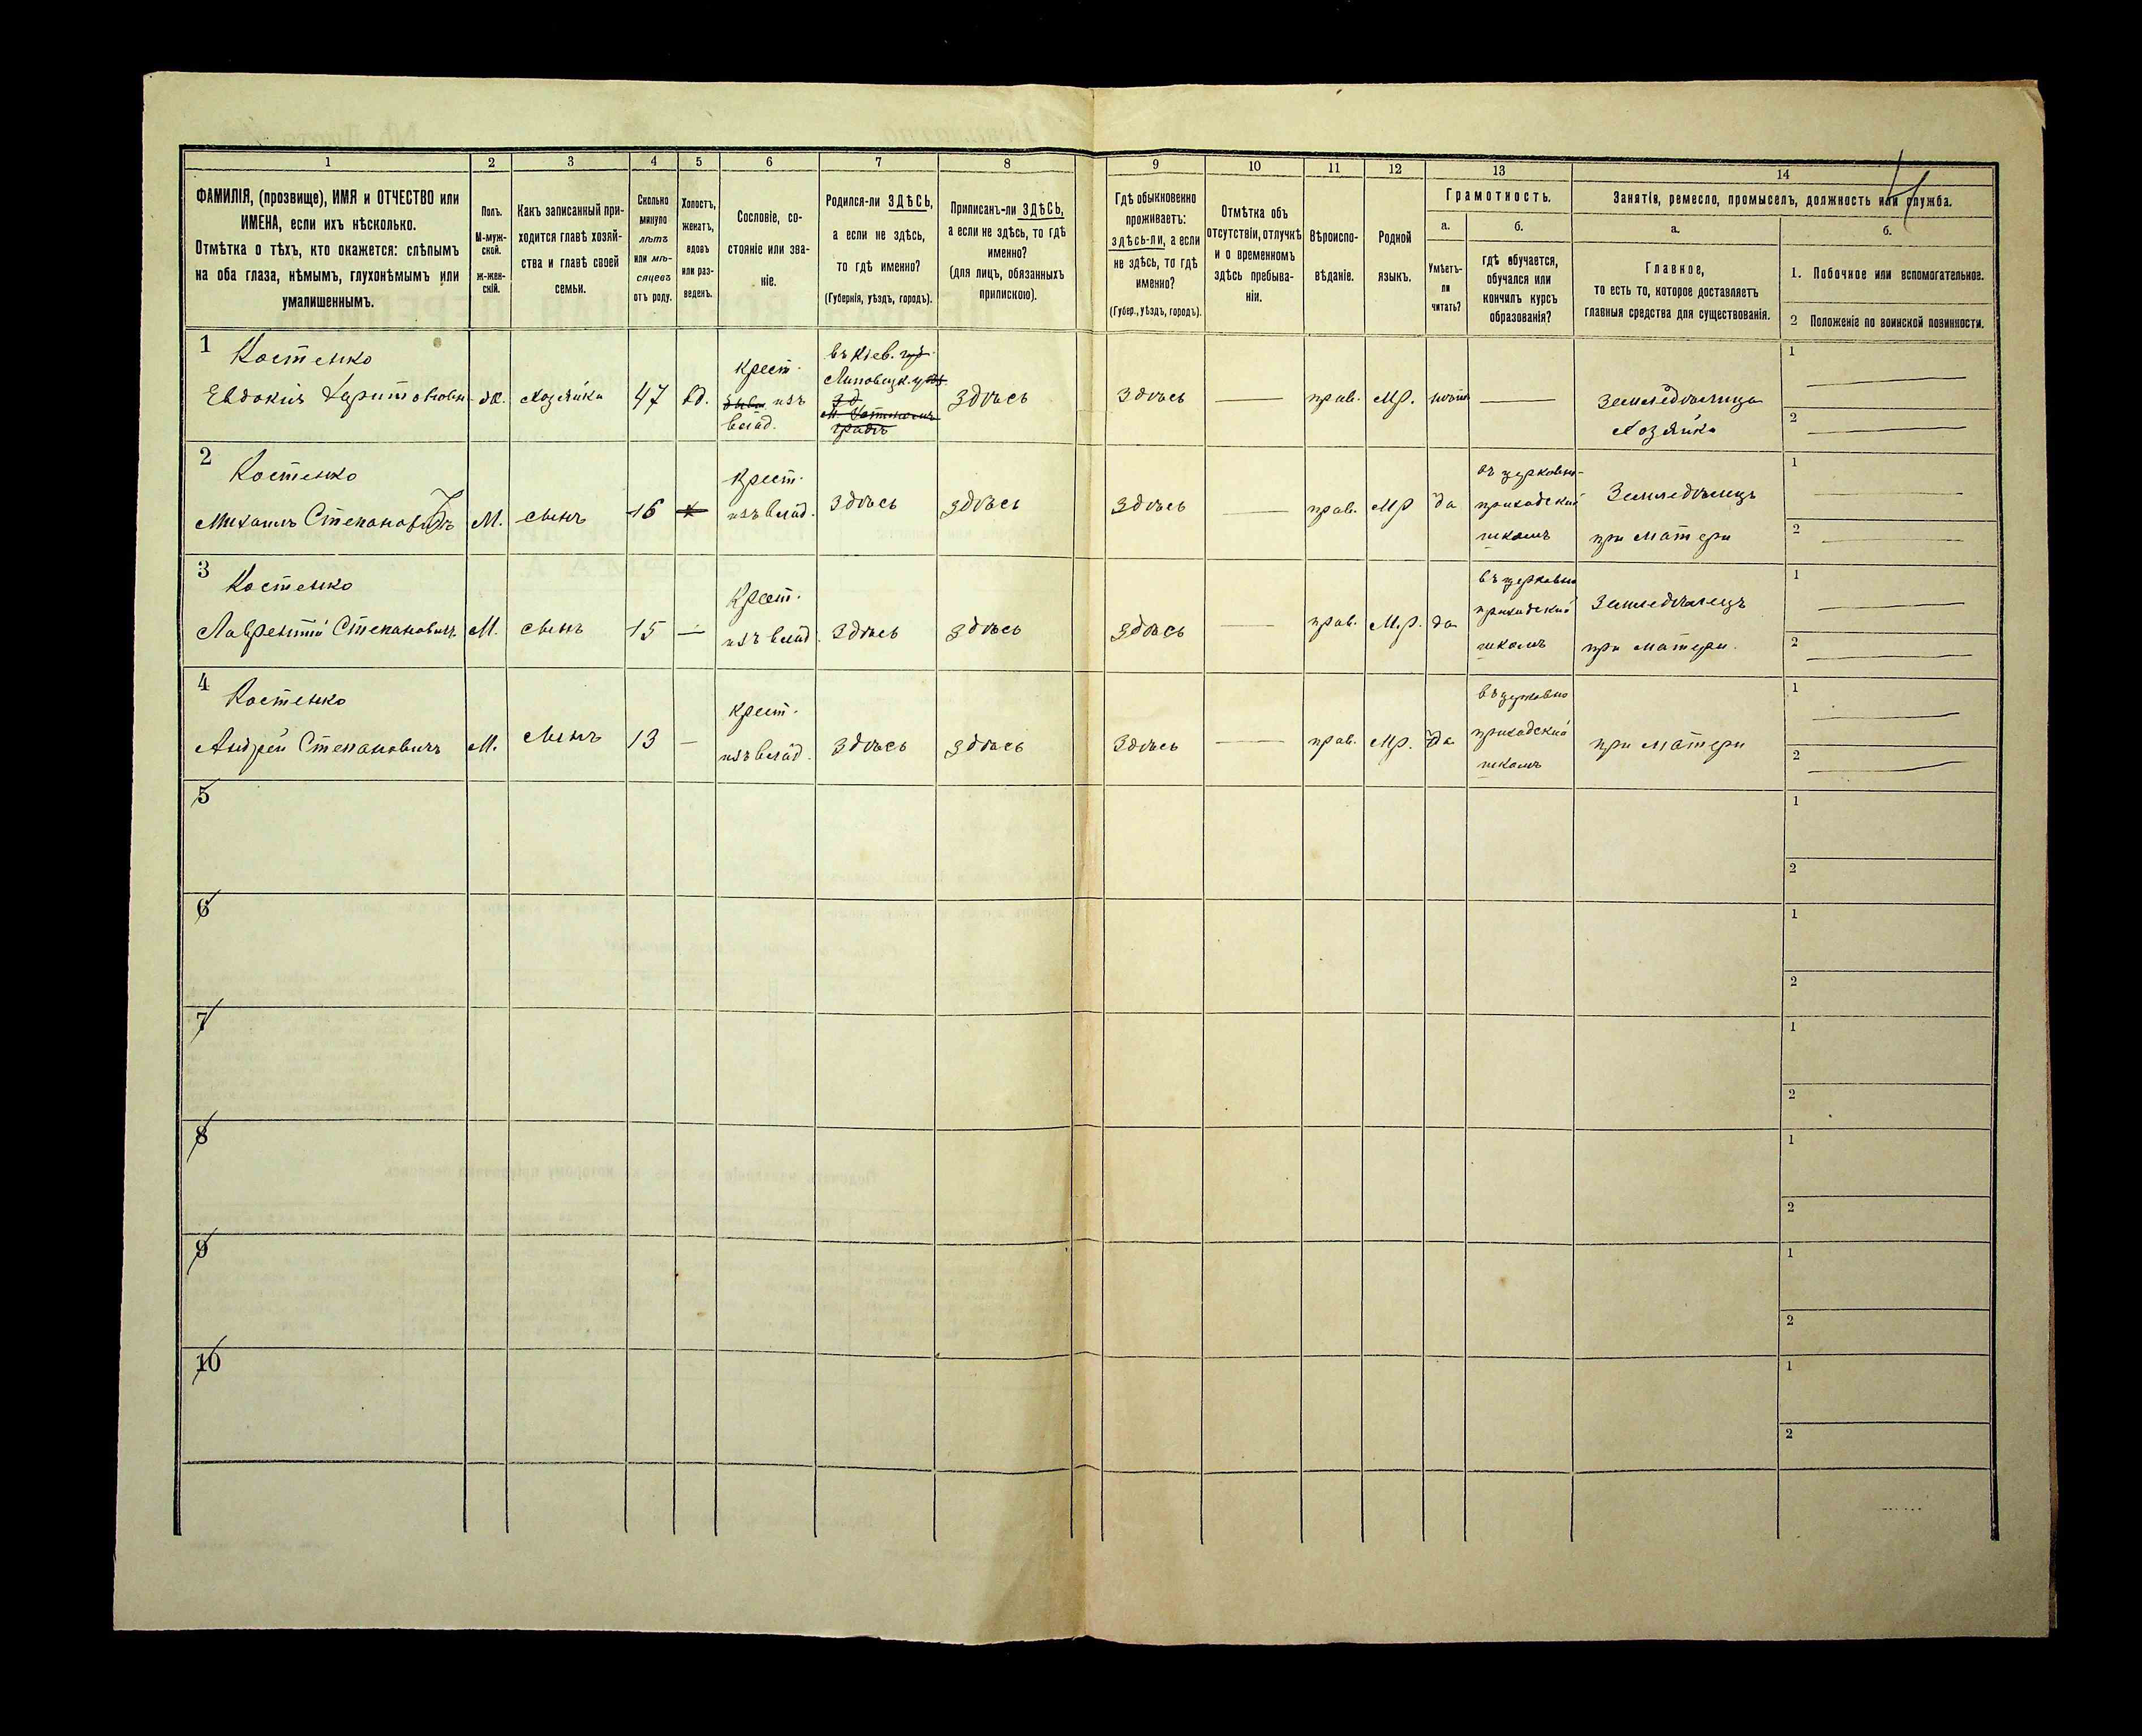 1
2
3
4
5
6
7
8
9
10
11
12
13
14
ФАМИЛІЯ, (прозвище), ИМЯ и ОТЧЕСТВО или
ИМЕНА, если ихъ нѣсколько.
Отмѣтка о тѣхъ, кто окажется: слѣпымъ
на оба глаза, нѣмымъ, глухонѣмымъ или
умалишеннымъ.
Полъ.
М-муж-
ской.
ж-жен-
скій.
Какъ записанный при-
ходится главѣ хозяй-
ства и главѣ своей
семьи.
Сколько
минуло
лѣтъ
или мѣ-
сяцевъ
отъ роду.
Холостъ,
женатъ,
вдовъ
или раз-
веденъ.
Сословіе, со-
стояніе или зва-
ніе.
Родился-ли ЗДѢСЬ,
а если не здѣсь,
то гдѣ именно?
(Губернія, уѣздъ, городъ).
Приписанъ-ли ЗДѢСЬ,
а если не здѣсь, то гдѣ
именно?
(для лицъ, обязанныхъ
припискою).
Гдѣ обыкновенно
проживаетъ:
здѣсь-ли, а если
не здѣсь, то гдѣ
именно?
(Губер., уѣздъ, городъ).
Отмѣтка объ
отсутствіи, отлучкѣ
и о временномъ
здѣсь пребыва-
ніи.
Вѣроиспо-
вѣданіе.
Родной
языкъ.
Грамотность.
а.
Умѣетъ-
ли
читать?
б.
гдѣ обучается,
обучался или
кончилъ курсъ
образованія?
Занятія, ремесло, промыселъ, должность или служба.
а.
Главное,
то есть то, которое доставляетъ
главныя средства для существованія.
б.
1. Побочное или вспомогательное.
2 Положеніе по воинской повинности.
1
Костенко
Евдокія Харитоновна
ж.
хозяйка
47
вд.
крест.
изъ
влад.
въ Кіев. губ.
Липовецк. у
здѣсь
здѣсь
—
прав.
мр.
нѣтъ
—
Земледѣлица
хозяйка
1
2
2
Костенко
Михаилъ Степановичъ
М.
сынъ
16
х
Крест.
изъ влад.
здѣсь
здѣсь
здѣсь
—
прав.
мр
да
въ церковно-
приходской
школѣ
Земледѣлецъ
при матери
1
2
3
Костенко
Лаврентій Степановичъ
М.
сынъ
15
—
Крест.
изъ влад.
здѣсь
здѣсь
здѣсь
—
прав.
м.р.
да
въ церковно
приходской
школѣ
Земледѣлецъ
при матери
1
2
4
Костенко
Андрей Степановичъ
М.
сынъ
13
—
крест.
изъ влад.
здѣсь
здѣсь
здѣсь
—
прав.
мр.
да
въ церковно
приходской
школѣ
при матери
1
2
5
1
2
6
1
2
7
1
2
8
1
2
9
1
2
10
1
2